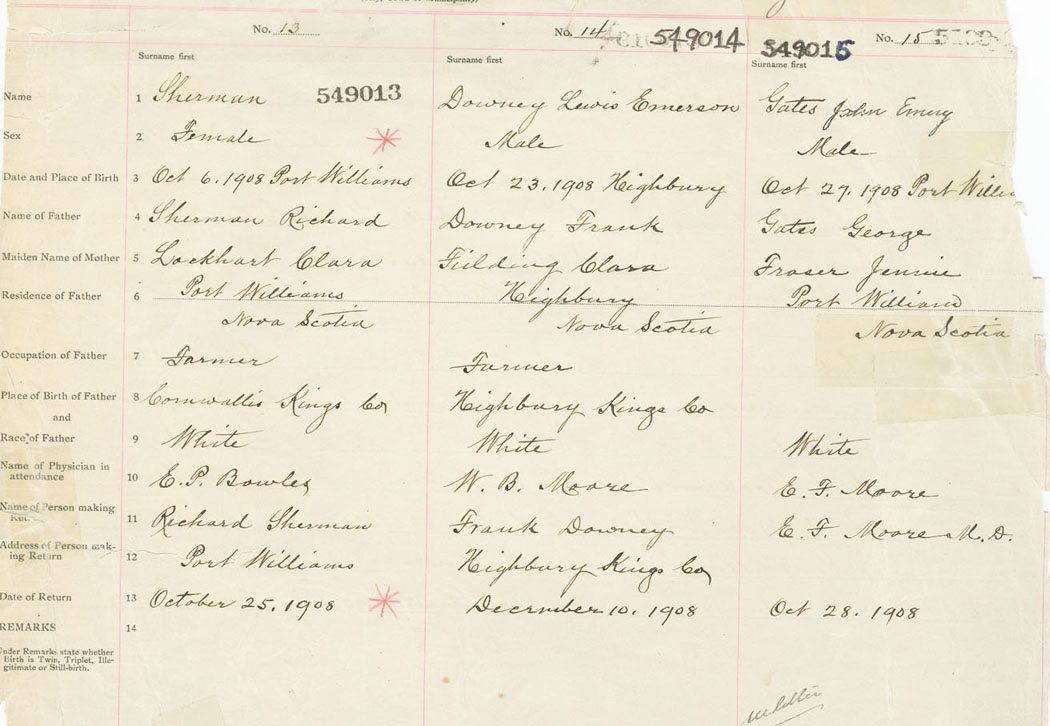 No. 13 No. 14 549014 549015 No. 15
Surname first Surname first Surname first
Name 1 Sherman 549013 Downey Lewis Emerson Gates John Emery
Sex 2 Female Male Male
Date and Place of Birth 3 Oct 6. 1908 Port Williams Oct 23. 1908 Highbury Oct 29. 1908 Port Willia
Name of Father 4 Sherman Richard Downey Frank Gates George
Maiden Name of Mother 5 Lockhart Clara Fielding Clara Fraser Jennie
Residence of Father 6 Port Williams Highbury Port Williams
Nova Scotia Nova Scotia Nova Scotia
Occupation of Father 7 Farmer Farmer
Place of Birth of Father 8 Cornwallis Kings Co Highbury Kings Co
and
Race of Father 9 White White White
Name of Physician in
attendance 10 E. P. Bowles W. B. Moore E. F. Moore
Name of Person making
11 Richard Sherman Frank Downey E. F. Moore M. D.
Address of Person mak-
ing Return 12 Port Williams Highbury Kings Co
Date of Return 13 October 25. 1908 December 10. 1908 Oct 28. 1908
REMARKS 14
Under Remarks state whether
Birth is Twin, Triplet, Ille-
gitimate or Still-birth.